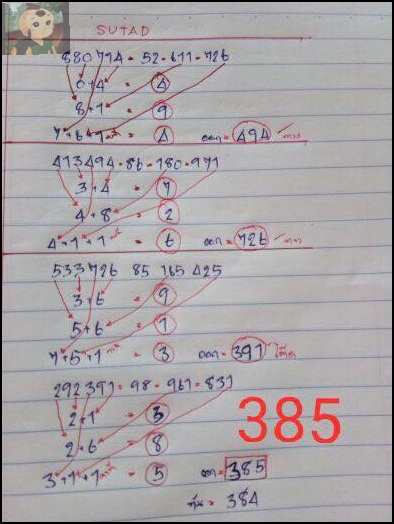 SUTAD
880 714 - 52 - 611 - 726
0+4 = 4
8+1 = 9
7+6+1 = 4 ออก = 494
413494 - 86 - 180 - 971
3+4 = 7
4+8 = 2
4+1+1 = 6 ออก = 726
533726 85 165 425
3+6 = 9
5+6 = 1
7+5+1 = 3 ออก = 391
292391 - 98 - 961 - 831
2+1 = 3
2+6 = 8
3+1+1 = 5 385
= 384
385